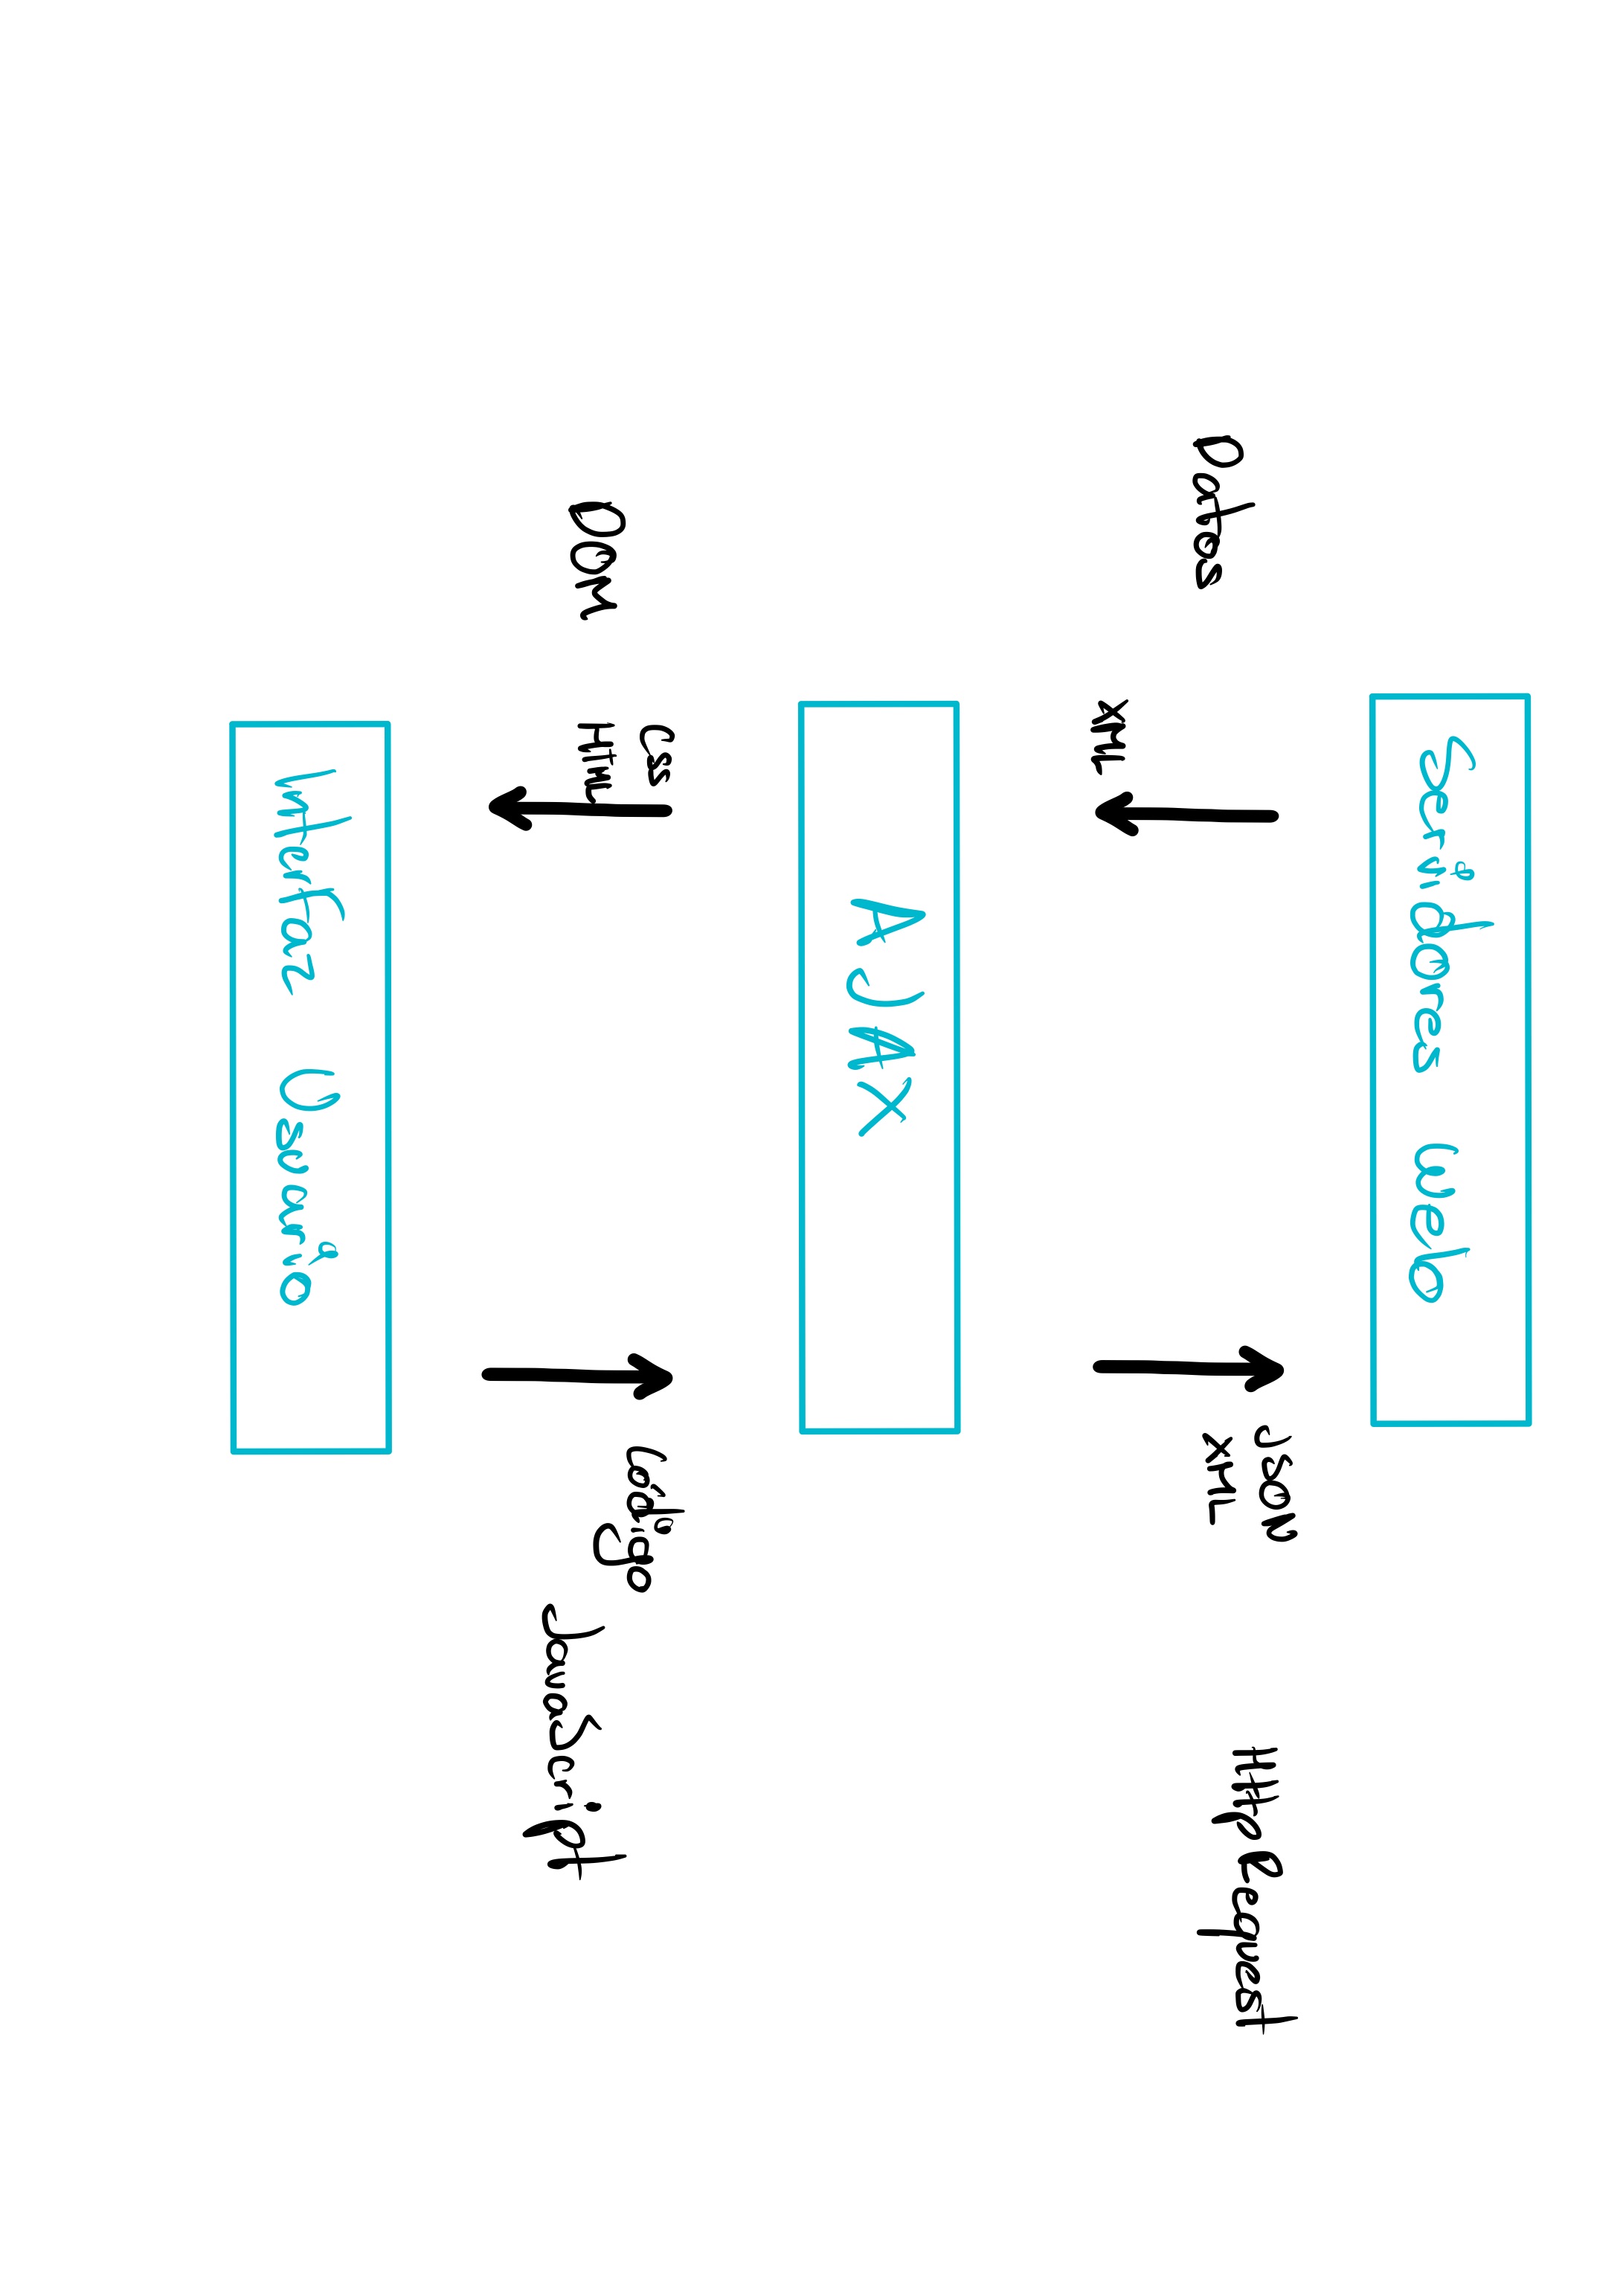 Servidores web
Datos
XML
JSON
XML
HttpRequest
AJAX
DOM
CSS
HTML
Código
JavaScript
InterFaz Usuario